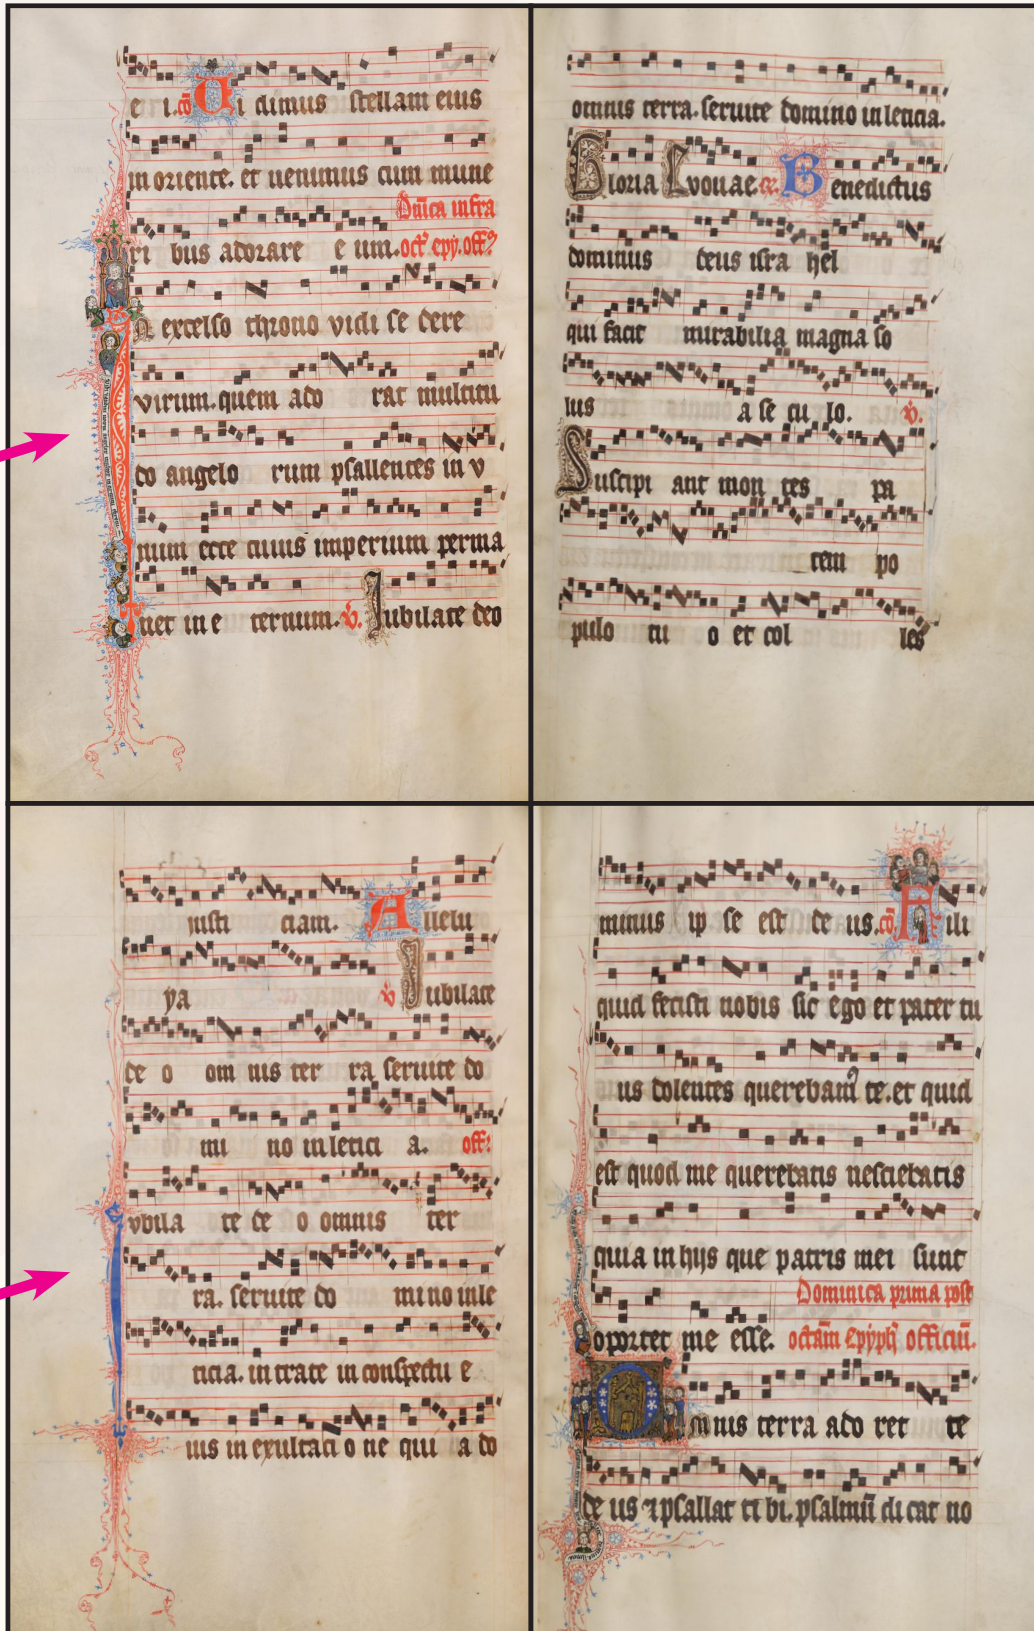 e i. co Vi dimus stellam eius
in oriente. et uenimus cum mune
Dnica infra
ri bus adorare e um. oct epy. off
In excelso throno vidi se dere
virum. quem ado rat multitu
do angelo rum psallentes in v
num ecce cuius imperium perma
net in e ternum. V. Jubilate deo
omnis terra. seruite domino in leticia.
Gloria Evouae. Gr. Benedictus
dominus deus isra hel
qui facit mirabilia magna so
lus a se cu lo. V.
Suscipi ant mon tes pa
cem po
pulo tu o et col les
iusti ciam. Allelu
ya V Jubilate
de o om nis ter ra seruite do
mi no in letici a. off
Ivbila te de o omnis ter
ra. seruite do mi no in le
ticia. in trate in conspectu e
ius in exultaci o ne qui a do
minus ip se est de us. co Fili
quid fecisti nobis sic ego et pater tu
us dolentes querebam te. et quid
est quod me querebatis nesciebatis
quia in hijs que patris mei sunt
Dominica prima post
oportet me esse. octam Epyph officiu.
Omnis terra ado ret te
de us 7 psallat ti bi. psalmu di cat no